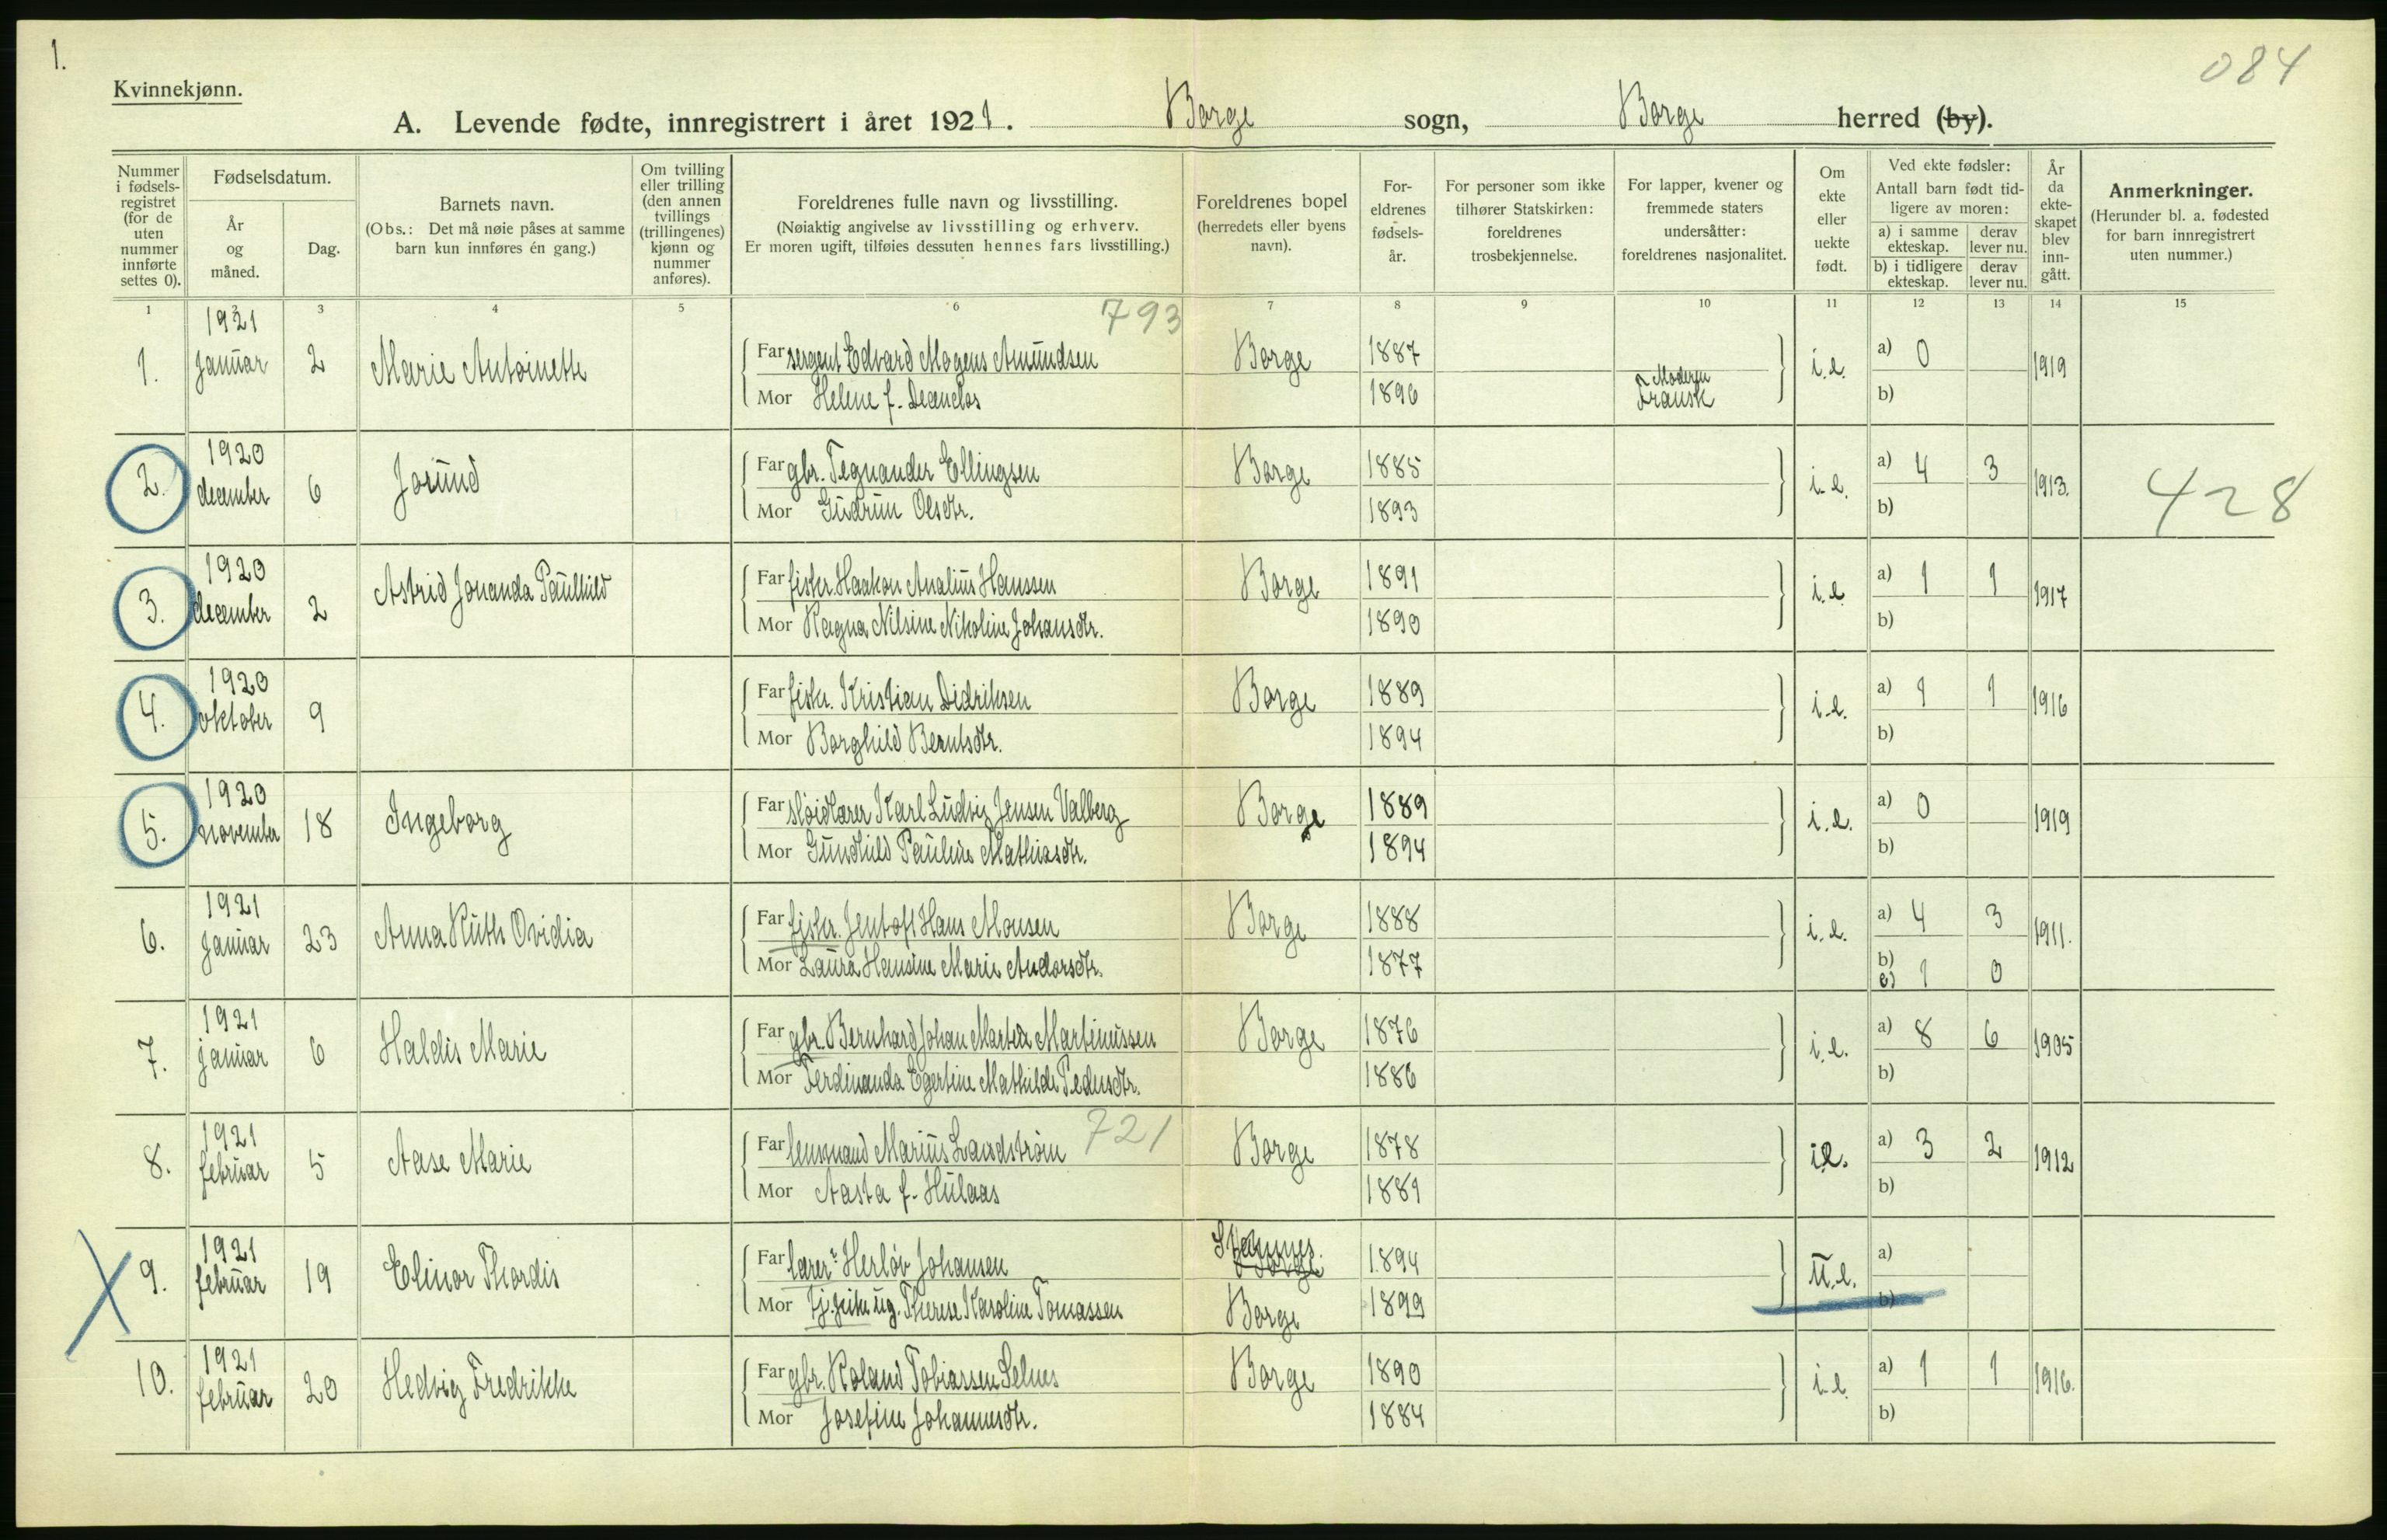 1.
084
Kvinnekjønn.
A. Levende fødte, innregistrert i året 1921. Borge sogn, Borge herred (by).
Nummer i fødsels-registret (for de uten nummer innførte settes 0).
Fødselsdatum.
År og måned.
Dag.
Barnets navn.
(Obs.: Det må nøie påses at samme barn kun innføres én gang.)
Om tvilling eller trilling (den annen tvillings (trillingenes) kjønn og nummer anføres).
Foreldrenes fulle navn og livsstilling.
(Nøiaktig angivelse av livsstilling og erhverv.
Er moren ugift, tilføies dessuten hennes fars livsstilling.)
Foreldrenes bopel
(herredets eller byens navn).
For-eldrenes fødsels-år.
For personer som ikke tilhører Statskirken: foreldrenes trosbekjennelse.
For lapper, kvener og fremmede staters undersåtter: foreldrenes nasjonalitet.
Om ekte eller uekte født.
Ved ekte fødsler:
Antall barn født tid-ligere av moren:
a) i samme ekteskap.
derav lever nu.
b) i tidligere ekteskap.
derav lever nu.
År da ekte-skapet blev inn-gått.
Anmerkninger.
(Herunder bl. a. fødested for barn innregistrert uten nummer.)
1 2 3 4 5 6 7 8 9 10 11 12 13 14 15
793
1. 1921 januar 2 Marie Antoinette Far sergent Edvard Mogens Amundsen Borge 1887 i.e. a) 0 1919
Mor Helene f. 1896 Moderen Fransk b)
2. 1920 december 6 Jorund Far gbr. Tegnander Ellingsen Borge 1885 i.e. a) 4 3 1913. 428
Mor Gudrun Olsdtr. 1893 b)
3. 1920 december 2 Astrid Jonanda Paulhild Far fisker. Haakon Analius Hanssen Borge 1891 i.e. a) 1 1 1917
Mor Ragna Nilsine Nikoline Johansdtr. 1890 b)
4. 1920 oktober 9 Far fisker. Kristian Didriksen Borge 1889 i.e. a) 1 1 1916
Mor Borghild Berntsdtr. 1894 b)
5. 1920 november 18 Ingeborg Far sløidlærer Karl Ludvig Jensen Valberg Borge 1889 i.e. a) 0 1919
Mor Gundhild Pauline Mathiasdtr. 1894 b)
6. 1921 januar 23 Anna Ruth Ovidia Far fisker. Jentoft Hans Monsen Borge 1888 i.e. a) 4 3 1911.
Mor Laura Hansine Marie Andorsdtr. 1877 b) 1 0
7. 1921 januar 6 Haldis Marie Far gbr. Bernhard Johan Martin Martinussen Borge 1876 i.e. a) 8 6 1905
Mor Ferdinanda Egertine Mathilde Pedersdtr. 1886 b)
721
8. 1921 februar 5 Aase Marie Far lensmand Marius Landstrøm Borge 1878 i.e. a) 3 2 1912
Mor Aasta f. Hulaas 1881 b)
9. 1921 februar 19 Elinor Thordis Far lærer Herløv Johansen Borge 1894 u.e. a)
Mor tj.pike ug. Therese Karoline Tomassen Borge 1899 b)
10. 1921 februar 20 Hedvig Fredrikke Far gbr. Roland Tobiassen Selnes Borge 1890 i.e. a) 1 1 1916.
Mor Josefine Johannesdtr. 1884 b)